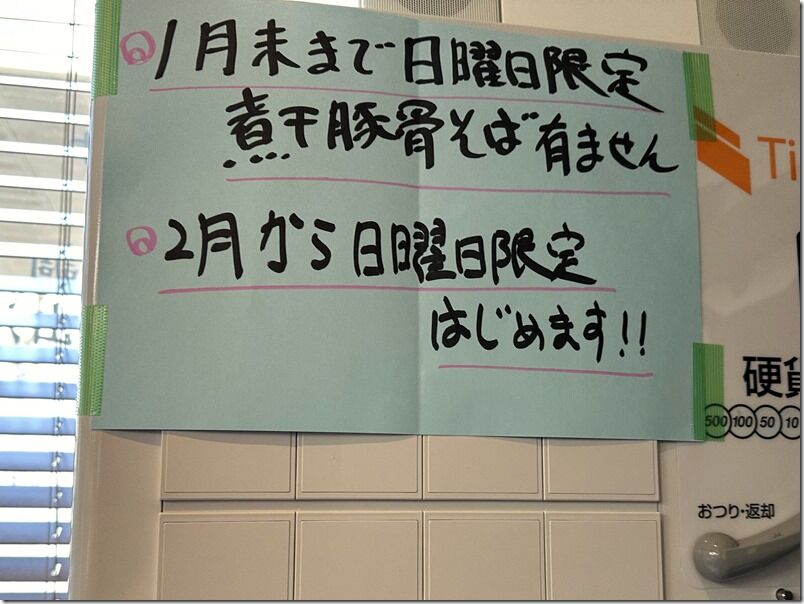 1月末まで日曜日限定
煮干豚骨そば有ません
2月から日曜日限定
はじめます!!
Ti
硬貨
500 100 50 10
おつり・返却